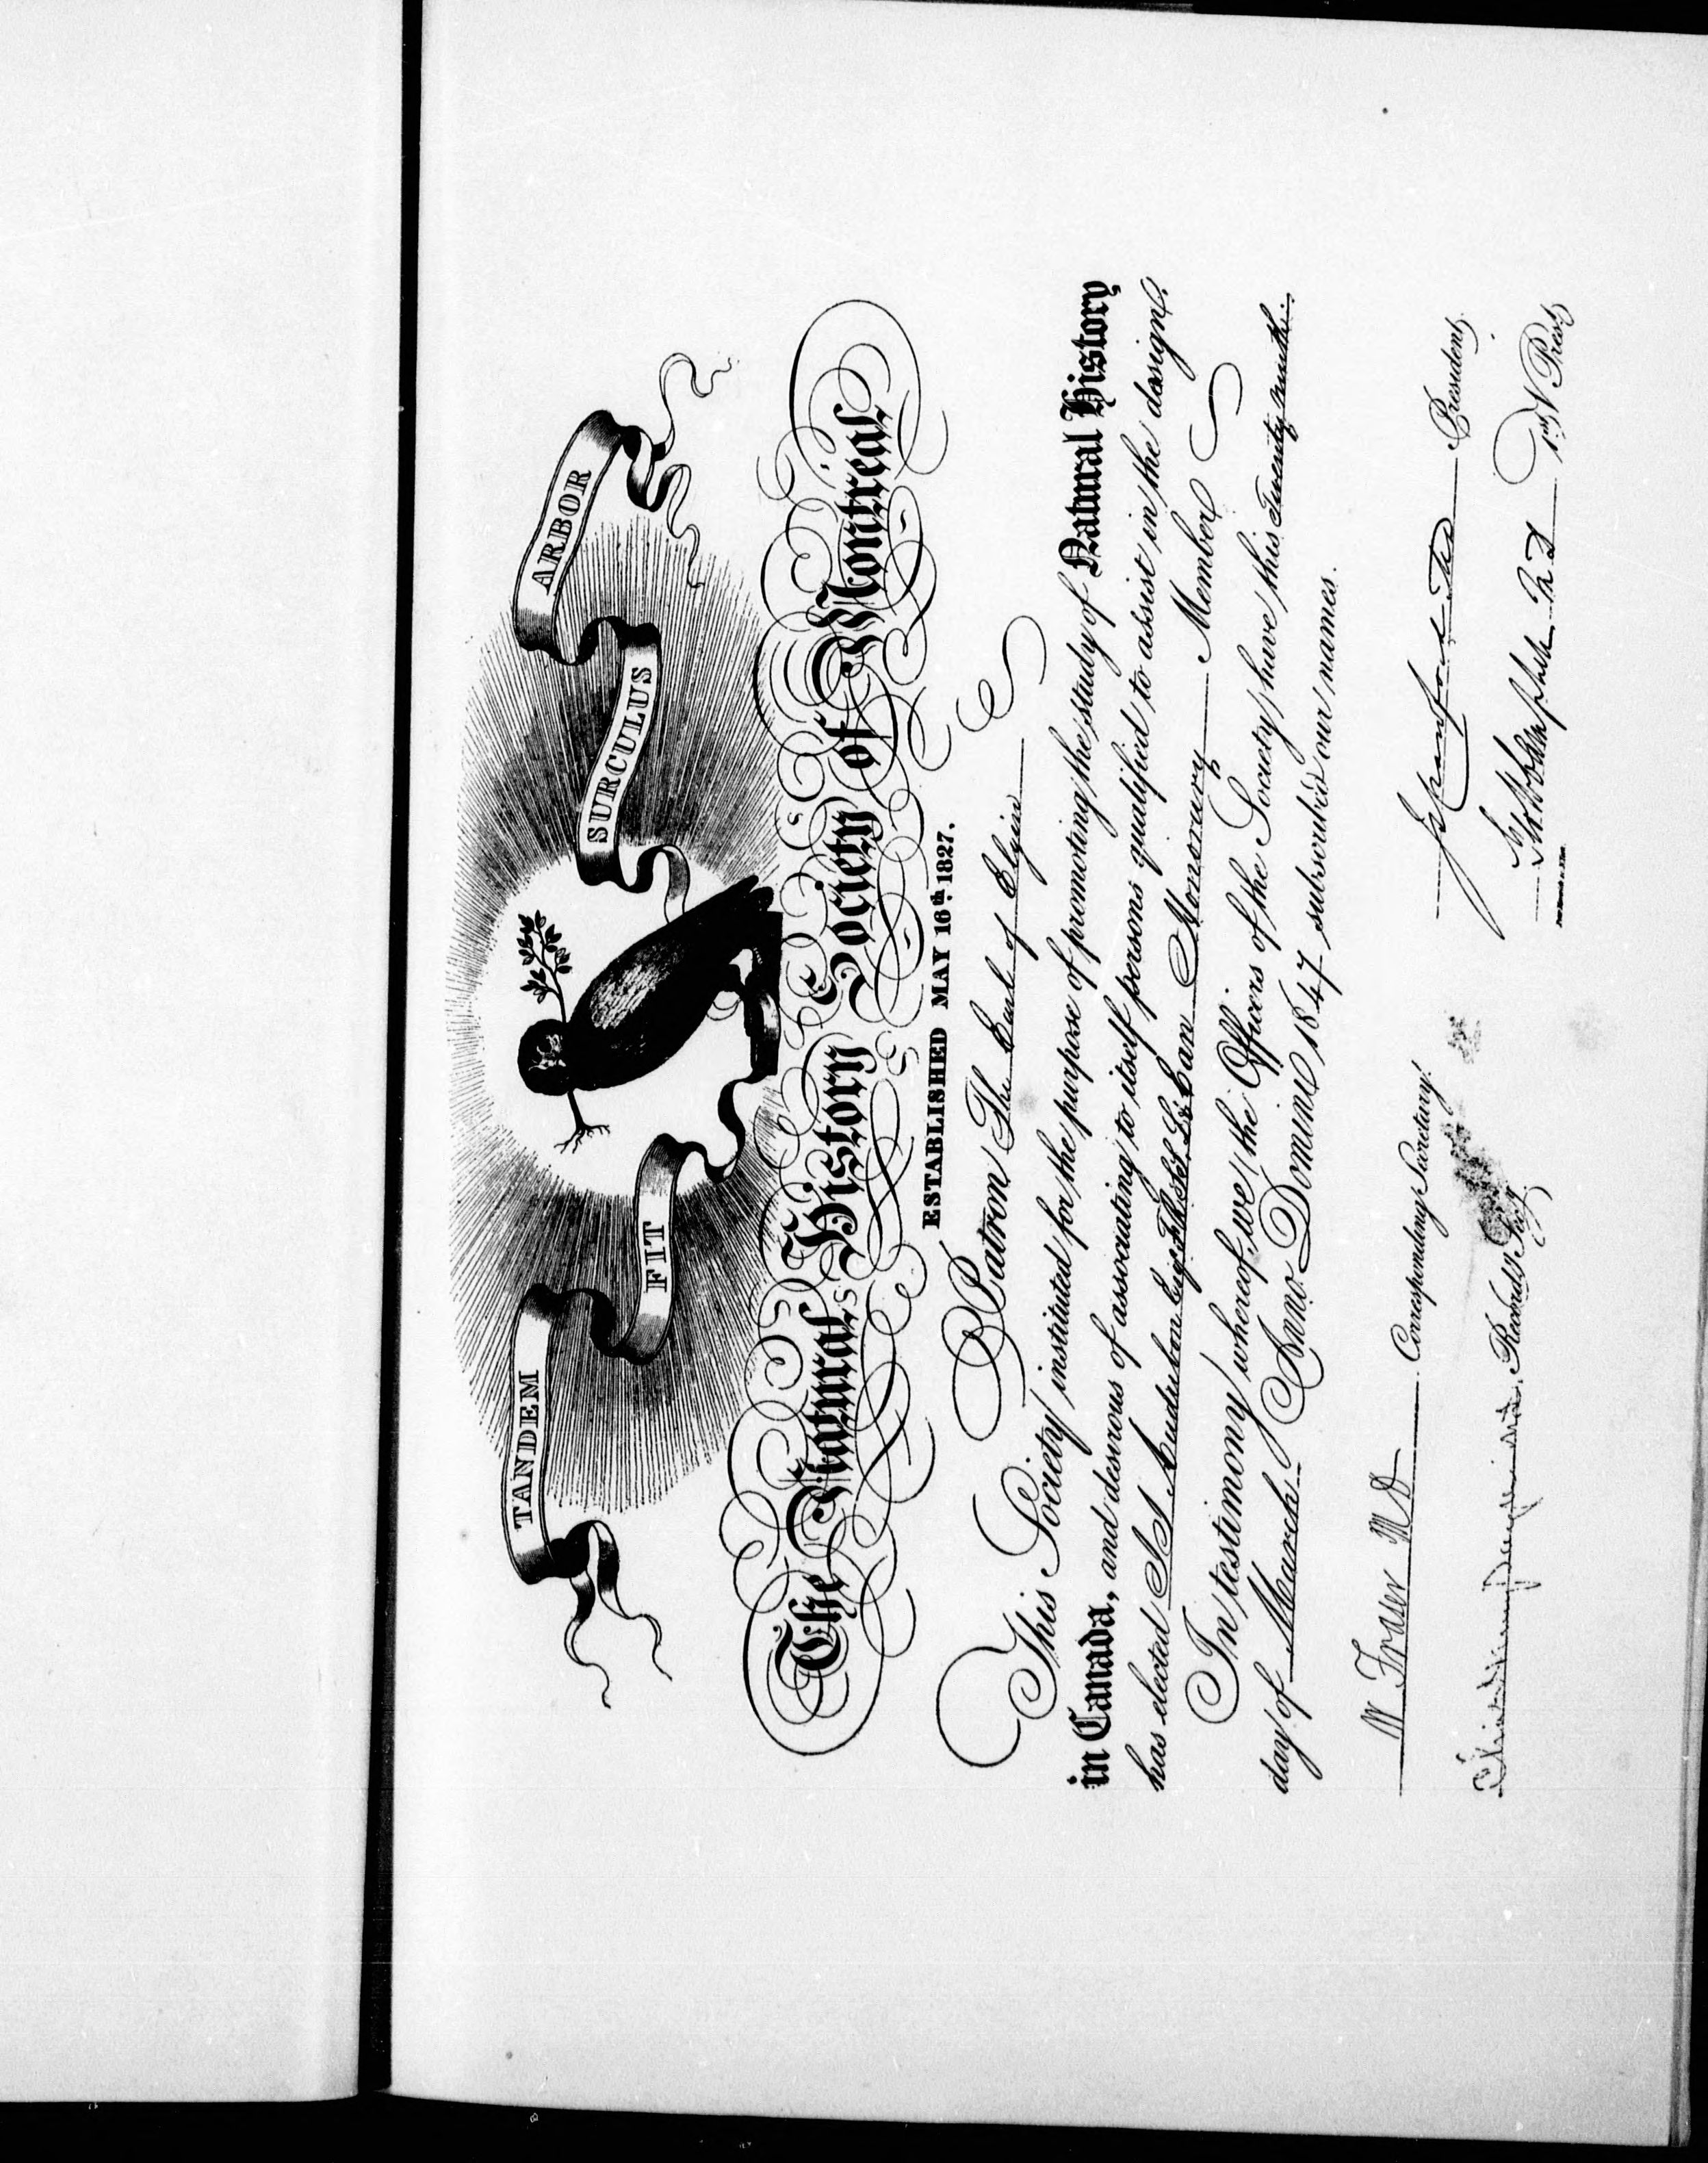 TANDEM FIT SURCULUS ARBOR
The Natural History Society of Montreal
ESTABLISHED MAY 16th 1827.
Patron The Earl of Elgin
This Society instituted for the purpose of promoting the study of Natural History
in Canada, and desirous of associating to itself persons qualified to assist in the design,
has elected J J Audubon Esqr Honorary Member
In testimony whereof, we the Officers of the Society have this twenty ninth
day of March Anno Domini 1847 subscribed our names.
W Fraser MD Corresponding Secretary.
President
Record'g Sec'y.
M D 1st V. Prest